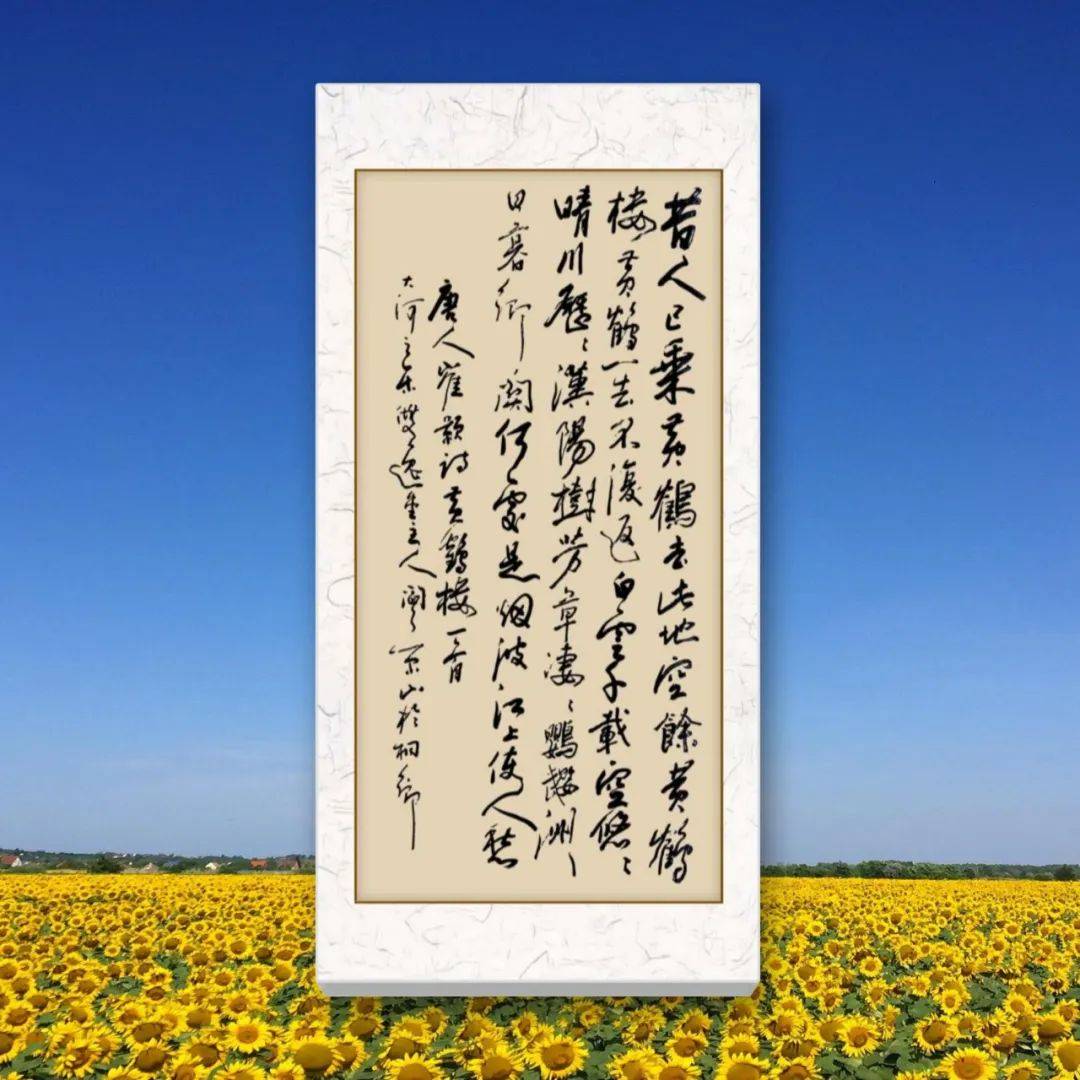 昔人已乘黄鶴去此地空餘黄鶴
楼黄鶴一去不復返白雲千載空悠〻
晴川歷〻漢陽樹芳草凄〻鸚鵡洲
日暮鄉関何處是烟波江上使人愁
唐人崔顥詩黄鶴楼一首
大河之东雙逸堂主人景山於桐鄉